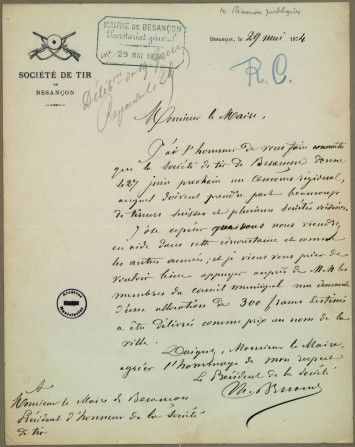 Besançon, 29 mai 1874
MAIRIE DE BESANÇON
Secrétariat général
29 MAI 1874
R. C.
SOCIÉTÉ DE TIR
DE
BESANÇON
Monsieur le Maire,
J'ai l'honneur de vous faire connaître
que la Société de tir de Besançon donne
le 27 juin prochain un concours régional,
auquel doivent prendre part beaucoup
de tireurs suisses et plusieurs sociétés voisines.
J'ose espérer que vous nous viendrez
en aide dans cette circonstance et comme
les autres années, et je viens vous prier de
vouloir bien appuyer auprès de M.M. les
membres du conseil municipal ma demande
d'une allocation de 300 francs destinés
à être délivrés comme prix au nom de la
ville.
Daignez, Monsieur le Maire,
agréer l'hommage de mon respect
Le Président de la Société
A
Monsieur le Maire de Besançon
Président d'honneur de la Société
de tir